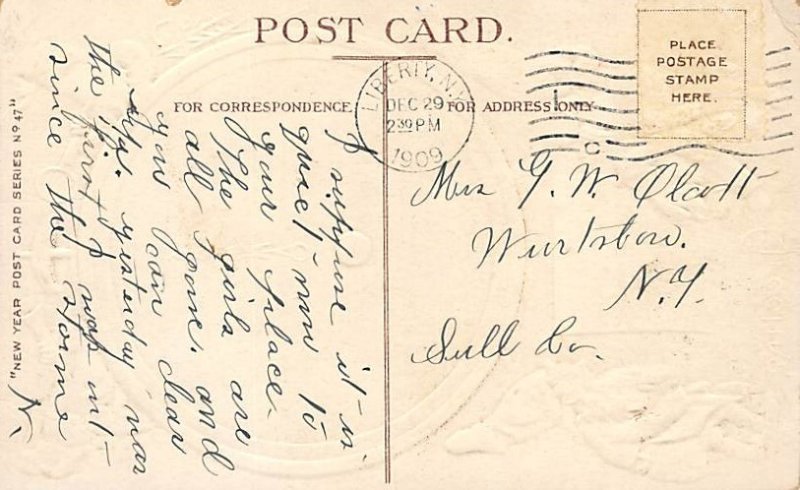 POST CARD.
FOR CORRESPONDENCE
FOR ADDRESS ONLY
PLACE
POSTAGE
STAMP
HERE.
LIBERTY, N.Y.
DEC 29
2 30 PM
1909
C
I suppose it is
quiet now to
your place.
The girls are
all gone. and
you can clear
up. yesterday was
the first I was out
since the storme
N.
Mrs G. W. Olcott
Wurtsboro.
N.Y.
Sull Co.
"NEW YEAR POST CARD SERIES Nº 47"